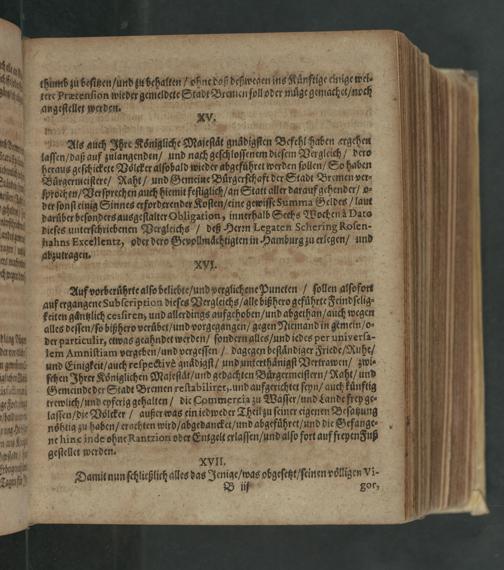 thumb zu besitzen/und zu behalten/ohne daß deßwegen ins Künftige einige wei-
tere Prætension wieder gemeldete Stadt Bremen soll oder müge gemachet/noch
angestellet werden.
XV.
Als auch Ihre Königliche Majestät gnädigsten Befehl haben ergehen
lassen/daß auf zulangenden/ und nach geschlossenem diesem Vergleich/ dero
heraus geschickete Völcker alsobald wieder abgeführet werden sollen/ So haben
Bürgermeistere/ Raht/ und Gemeine Bürgerschaft der Stadt Bremen ver-
sprochen/ Versprechen auch hiemit festiglich/an Statt aller darauf gehender/ o-
der sonst einig Sinnes erforderender Kosten/eine gewisse Summa Geldes/ laut
darüber besonders ausgestalter Obligation, innerhalb Sechs Wochen à Dato
dieses unterschriebenen Vergleichs/ deß Herrn Legaten Schering Rosen-
hahns Excellentz, oder dero Gevollmächtigten in Hamburg zu erlegen/ und
abzutragen.
XVI.
Auf vorberührte also beliebte/und verglichene Puncten/ sollen alsofort
auf ergangene Subscription dieses Vergleichs/alle bißhero geführte Feindselig-
keiten gäntzlich cessiren, und allerdings aufgehoben/und abgethan/auch wegen
alles dessen/so bißhero verübet/und vorgegangen/ gegen Niemand in gemein/o-
der particulir, etwas geahndet werden/ sondern alles/und iedes per universa-
lem Amnistiam vergeben/und vergessen/ dagegen beständiger Friede/Ruhe/
und Einigkeit/auch respectivè gnädigst/ und unterthänigst Vertrawen/ zwi-
schen Ihrer Königlichen Majestät/und gedachten Bürgermeistern/Raht/und
Gemeinde der Stadt Bremen restabiliret, und aufgerichtet seyn/ auch künftig
trewlich/und eyferig gehalten/ die Commercia zu Wasser/und Lande frey ge-
lassen/die Völcker/ ausser was ein iedweder Theil zu seiner eigenen Besatzung
nöhtig zu haben/erachten wird/abgedancket/und abgeführet/und die Gefange-
ne hinc inde ohne Rantzion oder Entgelt erlassen/und also fort auf freyen Fuß
gestellet werden.
XVII.
Damit nun schließlich alles das Jenige/was obgesetzt/seinen völligen Vi-
B iij
gor,